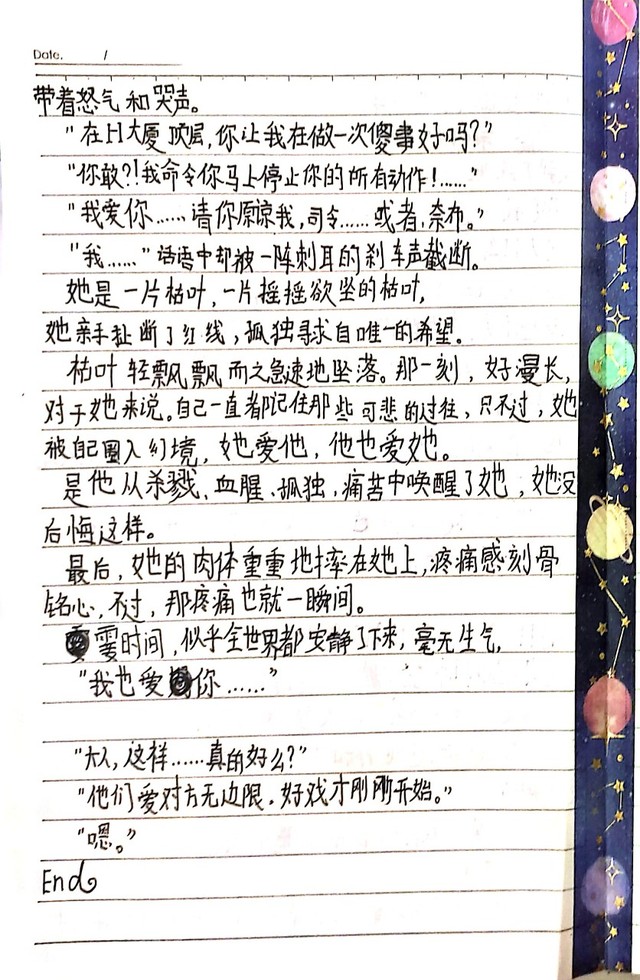 Date. /
带着怒气和哭声。
"在H大厦顶层,你让我在做一次傻事好吗?"
"你敢?!我命令你马上停止你的所有动作!……"
"我爱你……请你原谅我,司令……或者,奈布。"
"我……"话语中却被一阵刺耳的刹车声截断。
她是一片枯叶,一片摇摇欲坠的枯叶,
她亲手扯断了红线,孤独寻求自唯一的希望。
枯叶轻飘飘而又急速地坠落。那一刻,好漫长,
对于她来说。自己一直都记住那些可悲的过往,只不过,她
被自己困入幻境,她爱他,他也爱她。
是他从杀戮、血腥、孤独,痛苦中唤醒了她,她没
后悔这样。
最后,她的肉体重重地摔在地上,疼痛感刻骨
铭心,不过,那疼痛也就一瞬间。
霎时间,似乎全世界都安静了下来,毫无生气,
"我也爱你……"
"大人,这样……真的好么?"
"他们爱对方无边限,好戏才刚刚开始。"
"嗯。"
End